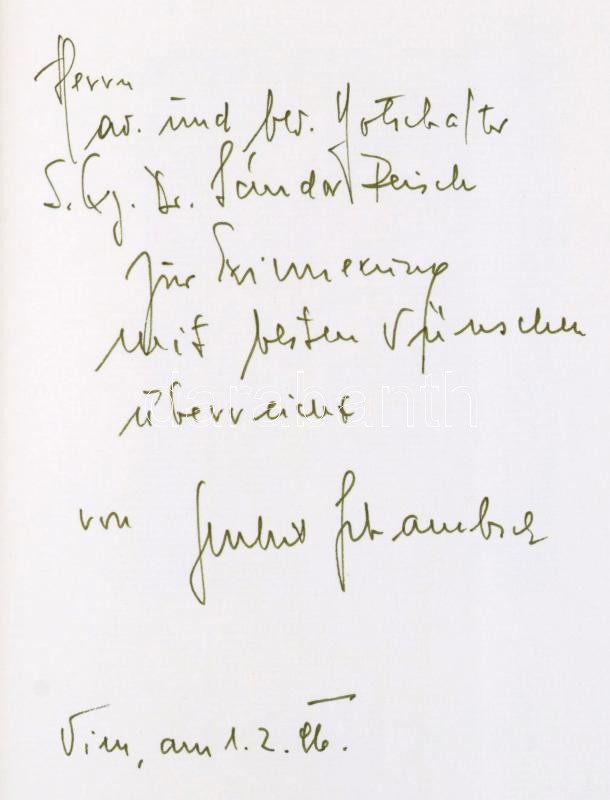 Herrn
ao. und bev. Botschafter
S. Exz. Dr. Sándor Peisch
zur Erinnerung
mit besten Wünschen
überreicht
darabanth
von
Wien, am 1. 2. 96.